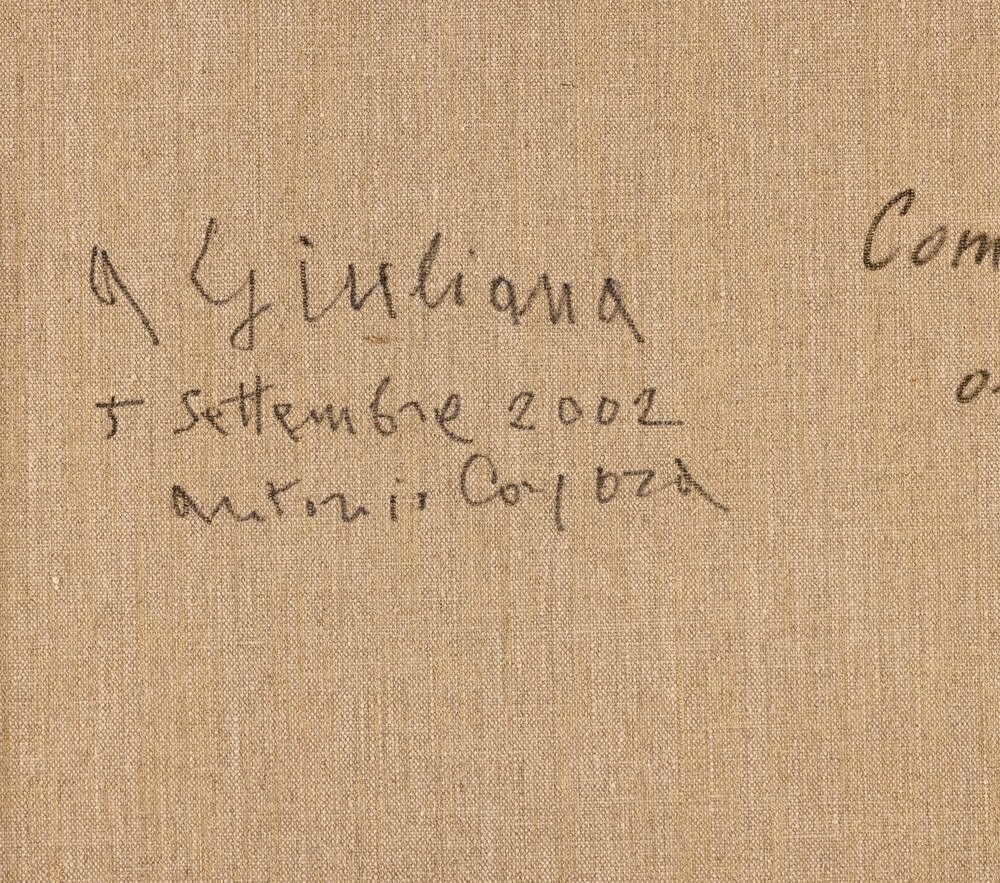 A Giuliana
5 Settembre 2002
Antonio Corpora
Com